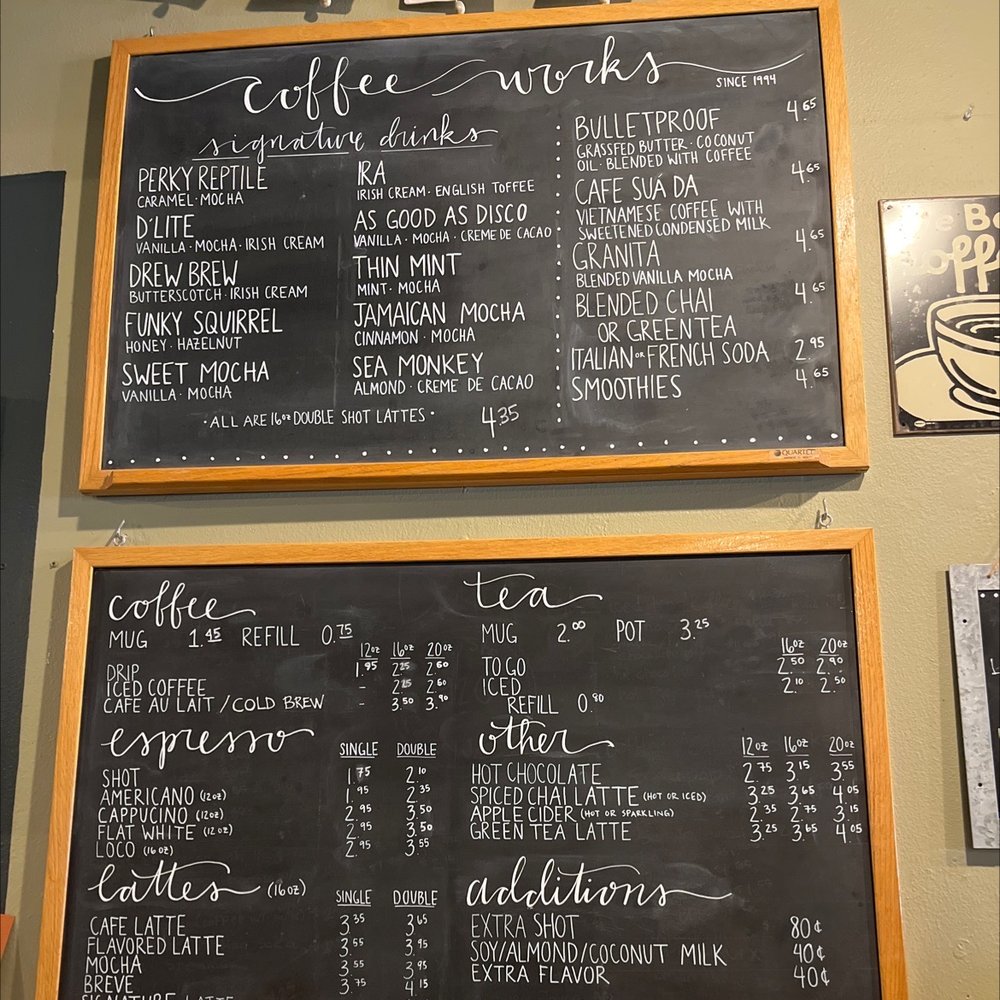 coffee works
SINCE 1994
signature drinks
PERKY REPTILE
CARAMEL · MOCHA
D'LITE
VANILLA · MOCHA · IRISH CREAM
DREW BREW
BUTTERSCOTCH · IRISH CREAM
FUNKY SQUIRREL
HONEY · HAZELNUT
SWEET MOCHA
VANILLA · MOCHA
IRA
IRISH CREAM · ENGLISH TOFFEE
AS GOOD AS DISCO
VANILLA · MOCHA · CREME DE CACAO
THIN MINT
MINT · MOCHA
JAMAICAN MOCHA
CINNAMON · MOCHA
SEA MONKEY
ALMOND · CREME DE CACAO
· ALL ARE 16oz DOUBLE SHOT LATTES · 4.35
BULLETPROOF 4.65
GRASSFED BUTTER · COCONUT
OIL · BLENDED WITH COFFEE
CAFE SUÁ DA 4.65
VIETNAMESE COFFEE WITH
SWEETENED CONDENSED MILK
GRANITA 4.65
BLENDED VANILLA MOCHA
BLENDED CHAI 4.65
OR GREEN TEA
ITALIAN OR FRENCH SODA 2.95
SMOOTHIES 4.65
QUARTET
coffee
MUG 1.45 REFILL 0.75
12oz 16oz 20oz
DRIP 1.95 2.25 2.60
ICED COFFEE - 2.25 2.60
CAFE AU LAIT / COLD BREW - 3.50 3.90
espresso SINGLE DOUBLE
SHOT 1.75 2.10
AMERICANO (12oz) 1.95 2.35
CAPPUCINO (12oz) 2.95 3.50
FLAT WHITE (12oz) 2.95 3.50
LOCO (16oz) 2.95 3.55
lattes (16oz) SINGLE DOUBLE
CAFE LATTE 3.35 3.65
FLAVORED LATTE 3.55 3.95
MOCHA 3.55 3.95
BREVE 3.75 4.15
SIGNATURE LATTE
tea
MUG 2.00 POT 3.25
16oz 20oz
TO GO 2.50 2.90
ICED 2.10 2.50
REFILL 0.80
other 12oz 16oz 20oz
HOT CHOCOLATE 2.75 3.15 3.55
SPICED CHAI LATTE (HOT OR ICED) 3.25 3.65 4.05
APPLE CIDER (HOT OR SPARKLING) 2.35 2.75 3.15
GREEN TEA LATTE 3.25 3.65 4.05
additions
EXTRA SHOT 80¢
SOY/ALMOND/COCONUT MILK 40¢
EXTRA FLAVOR 40¢